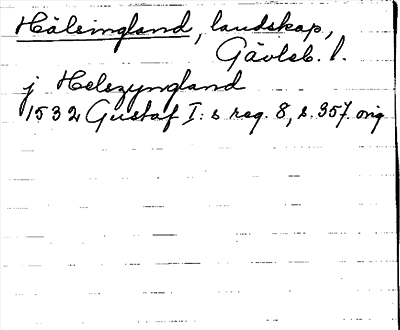 Hälsingland, landskap,
Gävleb. l.
j Helszyngland
1532 Gustaf I:s reg. 8, s. 357. orig